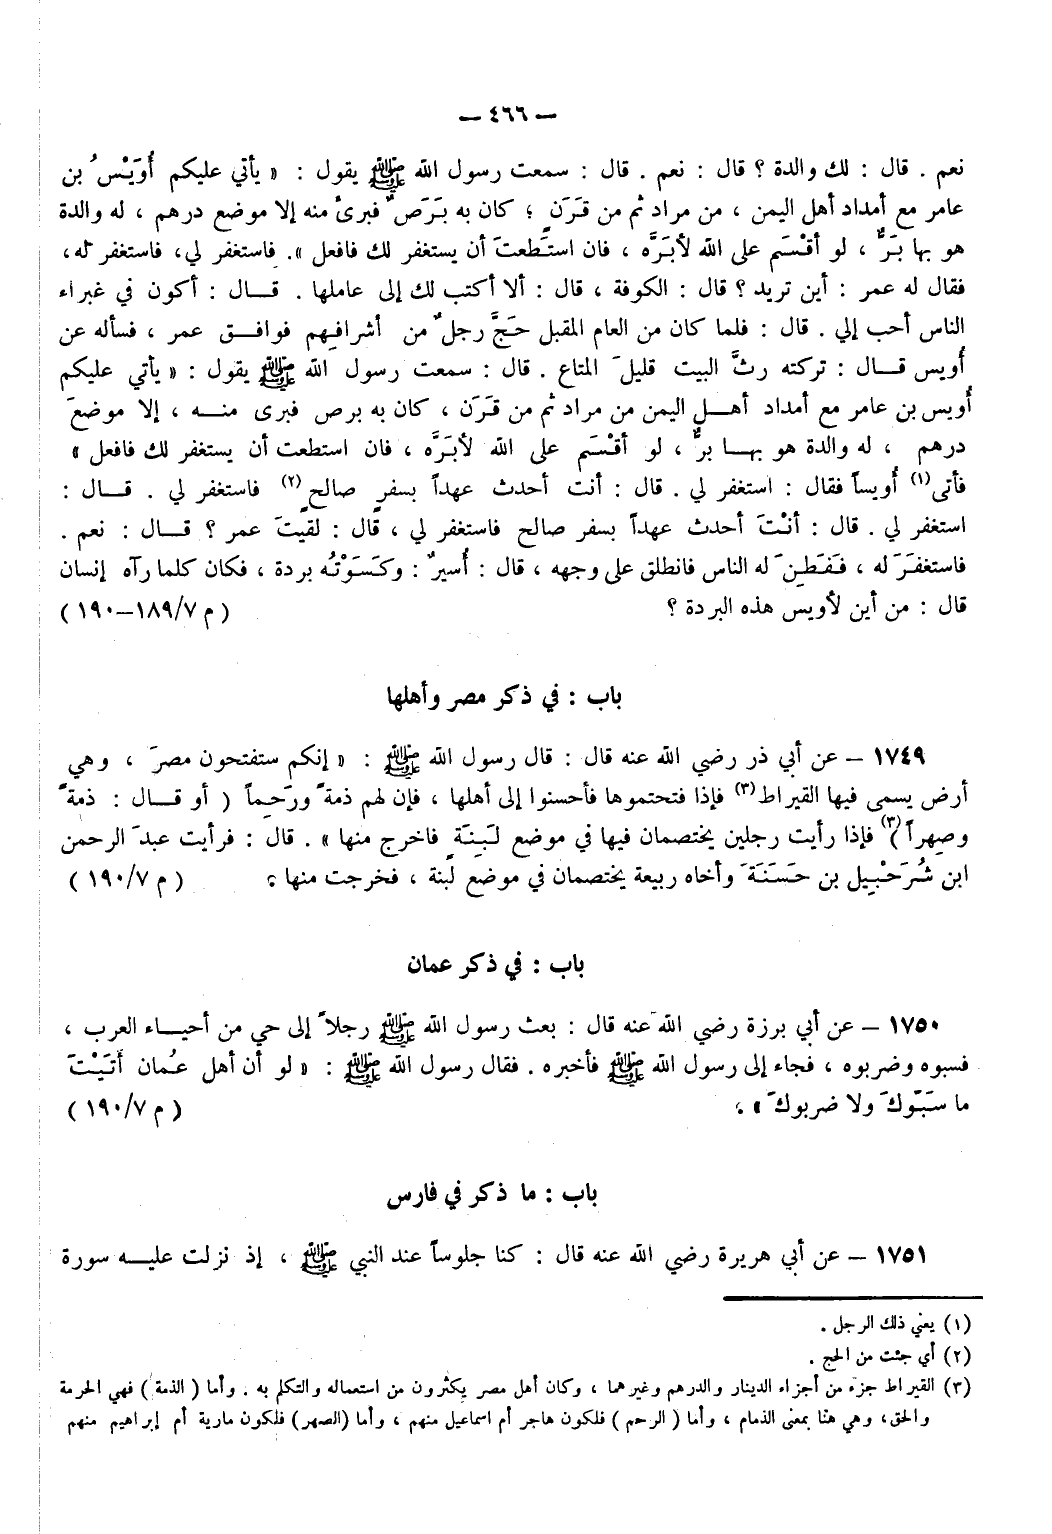 — ٤٦٦ —
نعم . قال : لك والدة ؟ قال : نعم . قال : سمعت رسول الله ﷺ يقول : « يأتي عليكم أُوَيْسُ بن
عامر مع أمداد أهل اليمن ، من مراد ثم من قَرَنٍ ؛ كان به بَرَصٌ فبرئ منه إلا موضع درهم ، له والدة
هو بها بَرٌّ ، لو أقْسَم على الله لأبَرَّه ، فان استَطعتَ أن يستغفر لك فافعل » . فاستغفر لي، فاستغفر له،
فقال له عمر : أين تريد ؟ قال : الكوفة ، قال : ألا أكتب لك إلى عاملها . قـال : أكون في غبراء
الناس أحب إلي . قال : فلما كان من العام المقبل حَجَّ رجلٌ من أشرافهم فوافـق عمر ، فسأله عن
أُويس قـال : تركته رثَّ البيت قليلَ المتاع . قال : سمعت رسول الله ﷺ يقول : « يأتي عليكم
أُويس بن عامر مع أمداد أهـل اليمن من مراد ثم من قَرَن ، كان به برص فبرى منـه ، إلا موضعَ
درهم ، له والدة هو بهـا برٌّ ، لو أقْسَم على الله لأبَرَّه ، فان استطعت أن يستغفر لك فافعل »
فأتى(١) أُويساً فقال : استغفر لي . قال : أنت أحدث عهداً بسفرٍ صالحٍ(٢) فاستغفر لي . قـال :
استغفر لي . قال : أنْتَ أحدث عهداً بسفر صالح فاستغفر لي ، قال : لقيتَ عمر ؟ قـال : نعم .
فاستغفَرَ له ، فَفَطِنَ له الناس فانطلق على وجهه ، قال : أُسيرٌ : وكَسَوْتُه بردة ، فكان كلما رآه إنسان
قال : من أين لأويس هذه البردة ؟ ( م ١٨٩/٧–١٩٠ )
باب : في ذكر مصر وأهلها
١٧٤٩ – عن أبي ذر رضي الله عنه قال : قال رسول الله ﷺ : « إنكم ستفتحون مصرَ ، وهي
أرض يسمى فيها القيراط(٣) فإذا فتحتموها فأحسنوا إلى أهلها ، فإن لهم ذمةً ورَحِماً ( أو قـال : ذمةً
وصِهراً )(٣) فإذا رأيت رجلين يختصمان فيها في موضع لَبِنَةٍ فاخرج منها » . قال : فرأيت عبدَ الرحمن
ابن شُرَحْبِيل بن حَسَنَةَ وأخاه ربيعة يختصمان في موضع لبنة ، فخرجت منها . ( م ١٩٠/٧ )
باب : في ذكر عمان
١٧٥٠ – عن أبي برزة رضي الله عنه قال : بعث رسول الله ﷺ رجلاً إلى حي من أحيـاء العرب ،
فسبوه وضربوه ، فجاء إلى رسول الله ﷺ فأخبره . فقال رسول الله ﷺ : « لو أن أهل عُمان أتَيْتَ
ما سَبّوكَ ولا ضربوكَ » . ( م ١٩٠/٧ )
باب : ما ذكر في فارس
١٧٥١ – عن أبي هريرة رضي الله عنه قال : كنا جلوساً عند النبي ﷺ ، إذ نزلت عليـه سورة
(١) يعني ذلك الرجل .
(٢) أي جئت من الحج .
(٣) القيراط جزء من أجزاء الدينار والدرهم وغيرهما ، وكان أهل مصر يكثرون من استعماله والتكلم به . وأما ( الذمة ) فهي الحرمة
والحق، وهي هنا بمعنى الذمام ، وأما ( الرحم ) فلكون هاجر أم اسماعيل منهم ، وأما (الصهر) فلكون مارية أم إبراهيم منهم